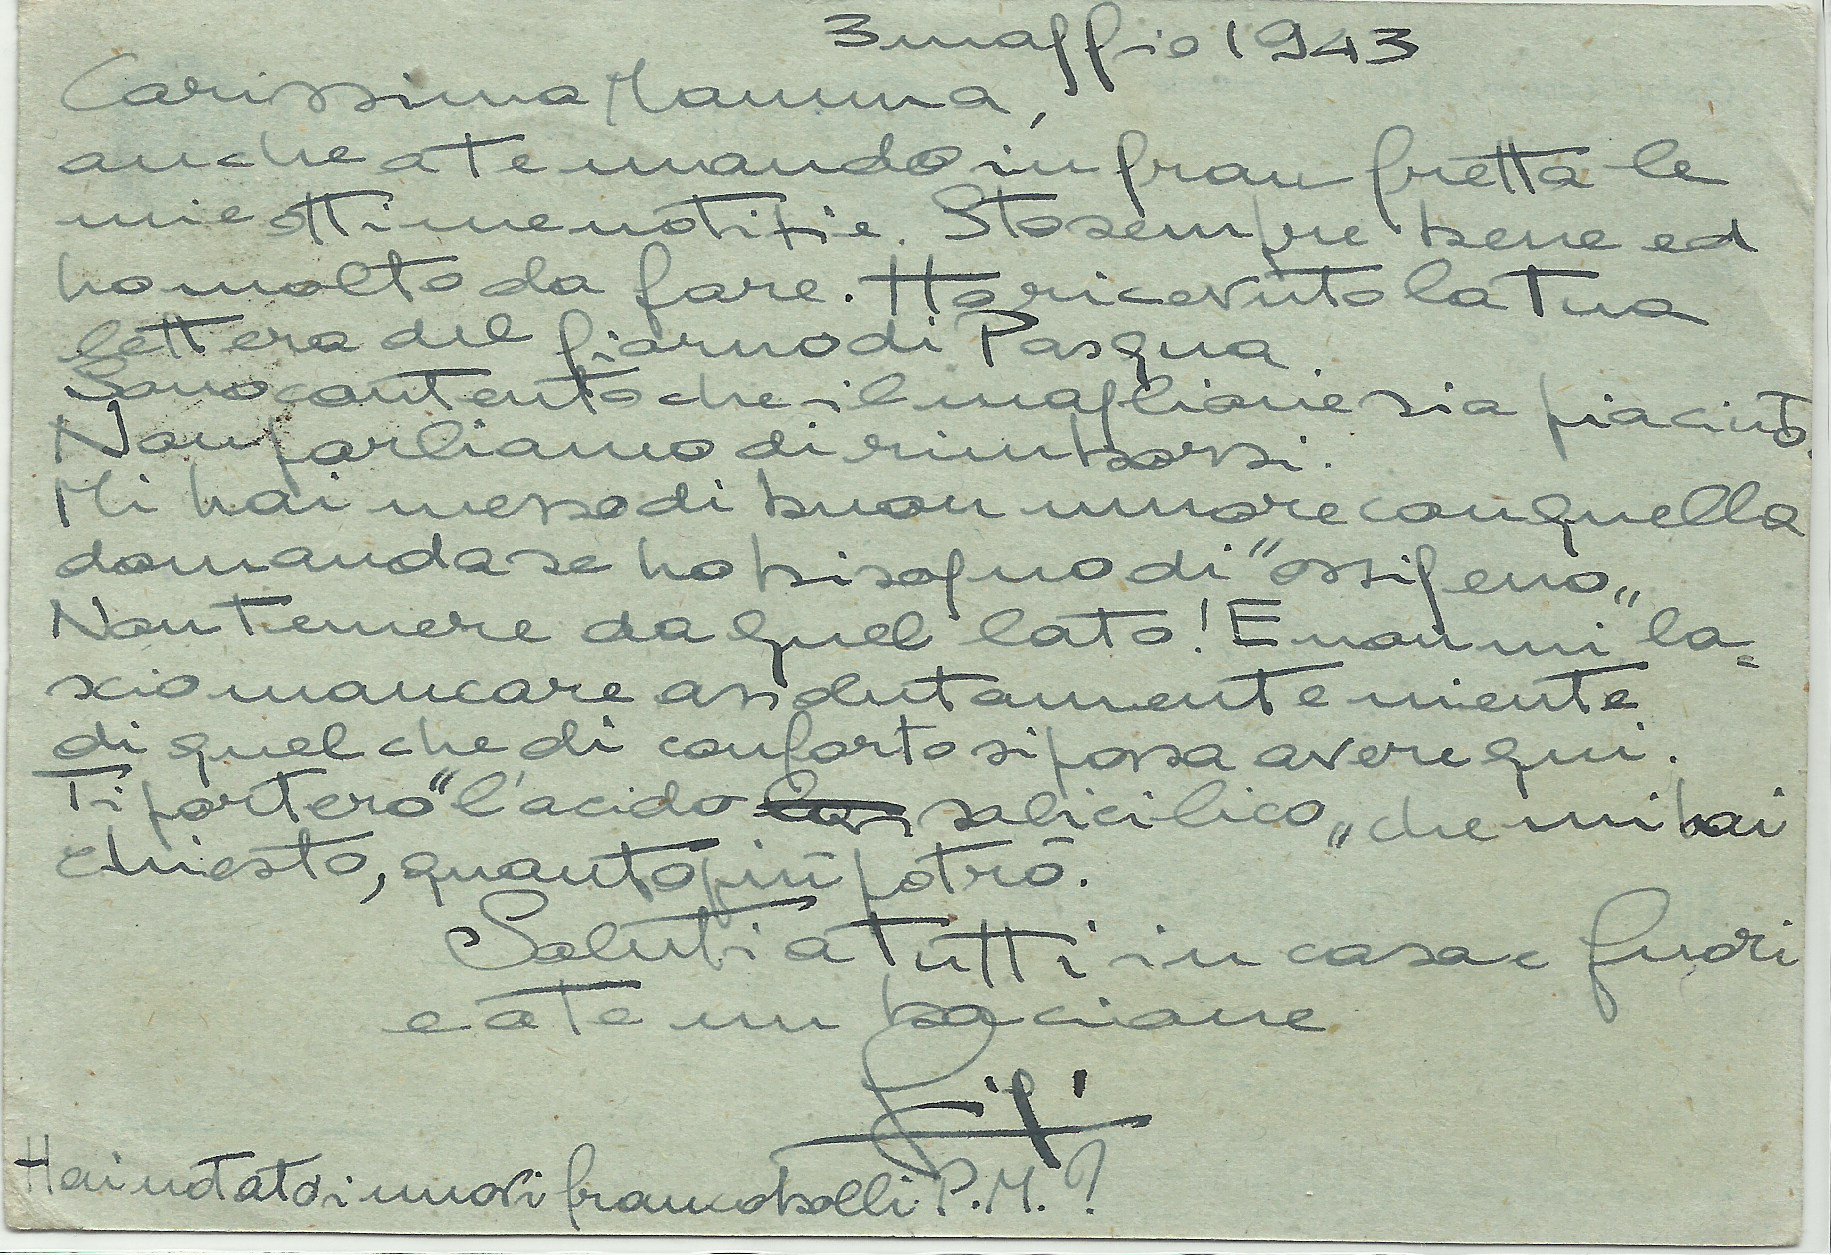 3 maggio 1943
Carissima Mamma,
anche a te mando in gran fretta le
mie ottime notizie. Sto sempre bene ed
ho molto da fare. Ho ricevuto la tua
lettera del giorno di Pasqua
Sono contento che il maglione sia piaciuto.
Non parliamo di rimborsi.
Mi hai messo di buon umore con quella
domanda se ho bisogno di "ossigeno„
Non temere da quel lato! E non mi la=
scio mancare assolutamente niente
di quel che di conforto si possa avere qui.
Ti porterò "l'acido salicilico„ che mi hai
chiesto, quanto più potrò.
Saluti a tutti in casa e fuori
e a te un bacione
Gigi
Hai notato i nuovi francobolli P.M.?